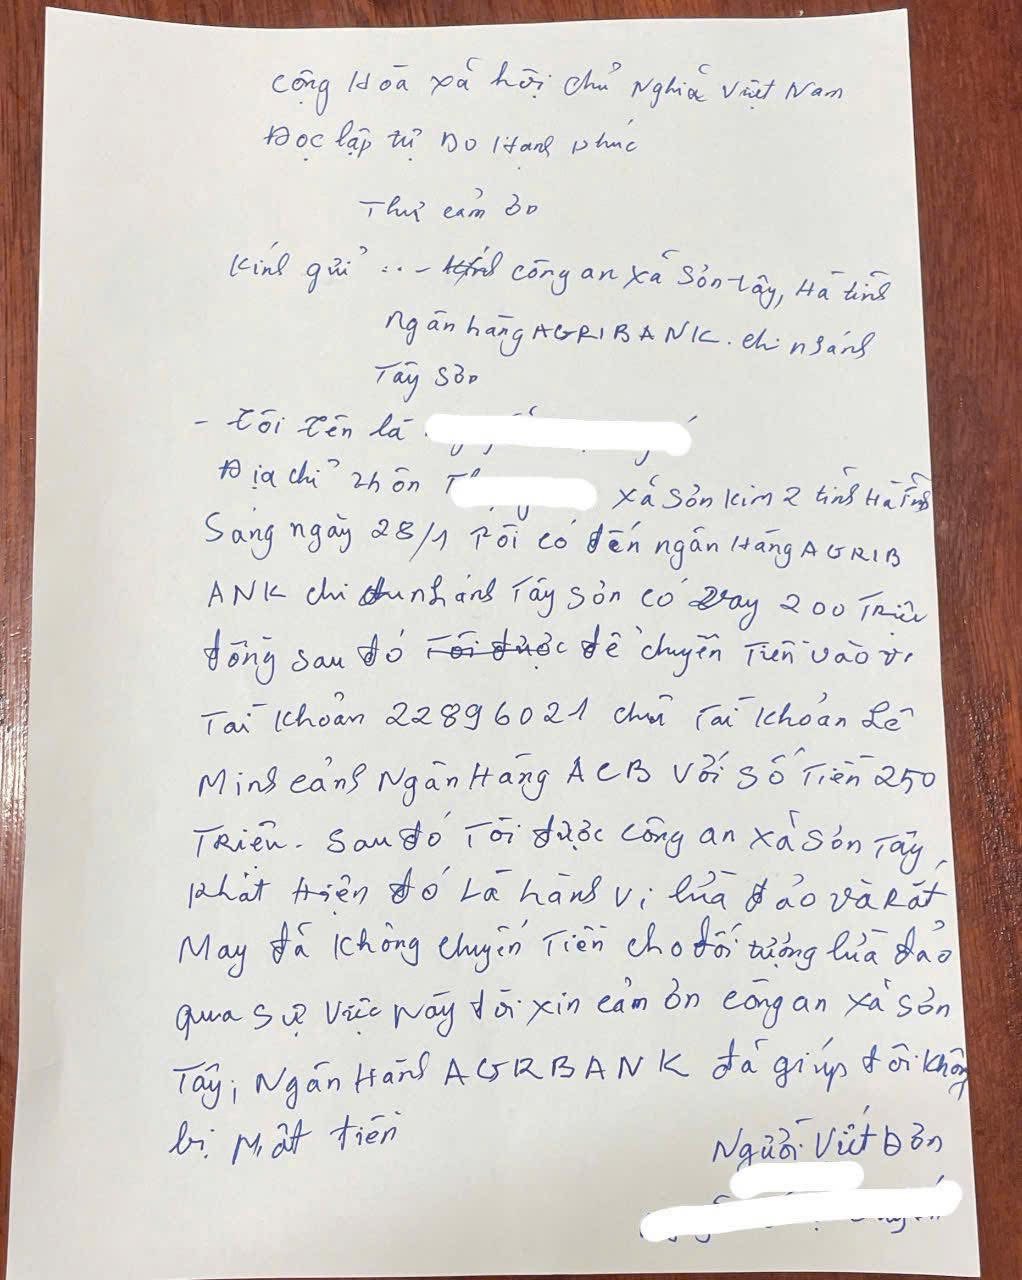 Cộng Hòa xã hội chủ Nghĩa Việt Nam
Độc lập tự Do Hạnh phúc
Thư cảm ơn
Kính gửi : - công an xã Sơn tây, Hà tĩnh
Ngân hàng AGRIBANK. chi nhánh
Tây Sơn
- tôi tên là
Địa chỉ thôn xã Sơn Kim 2 tỉnh Hà Tĩnh
Sáng ngày 28/1 Tôi có đến ngân Hàng AGRIB
ANK chi nhánh Tây Sơn có vay 200 Triệu
đồng sau đó để chuyển Tiền vào
Tài Khoản 22896021 chủ Tài khoản Lê
Minh cảnh Ngân Hàng ACB Với Số Tiền 250
TRiệu. Sau đó Tôi được công an xã Sơn Tây
phát Hiện đó Là hành vi lừa đảo và Rất
May đã Không chuyển Tiền cho đối tượng lừa đảo
qua sự việc Này tôi xin cảm ơn công an xã Sơn
Tây, Ngân Hàng AGRBANK đã giúp tôi không
bị Mất tiền
Người Viết Đơn